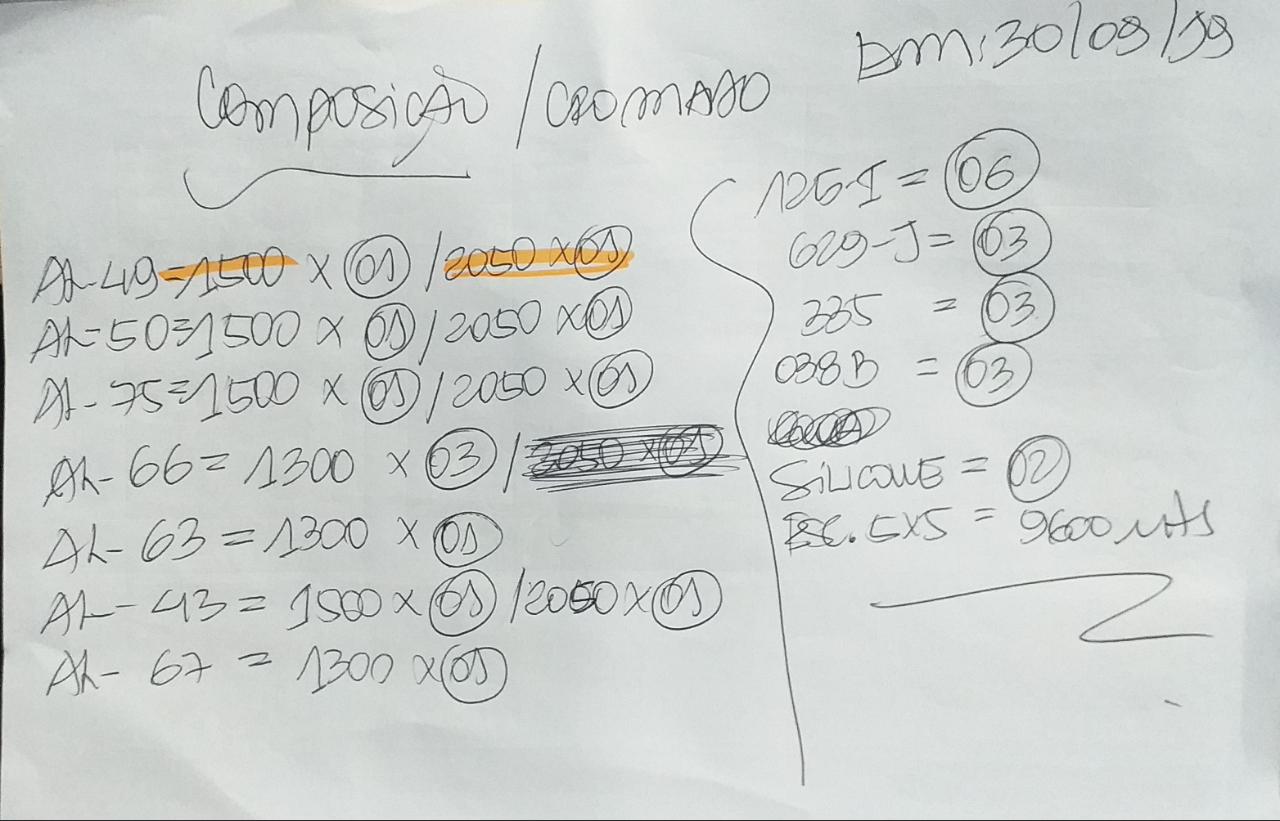 DM: 30/09/19
Composição / CROMADO
AL-49=1500 x 01 / 2050 x 01
AL-50=1500 x 01 / 2050 x 01
AL-75=1500 x 01 / 2050 x 01
AL-66=1300 x 03 /
AL-63=1300 x 01
AL-43=1500 x 01 / 2050 x 01
AL-67=1300 x 01
126-I = 06
629-J = 03
335 = 03
038B = 03
SILICONE = 02
ESC. 5x5 = 9600 mts